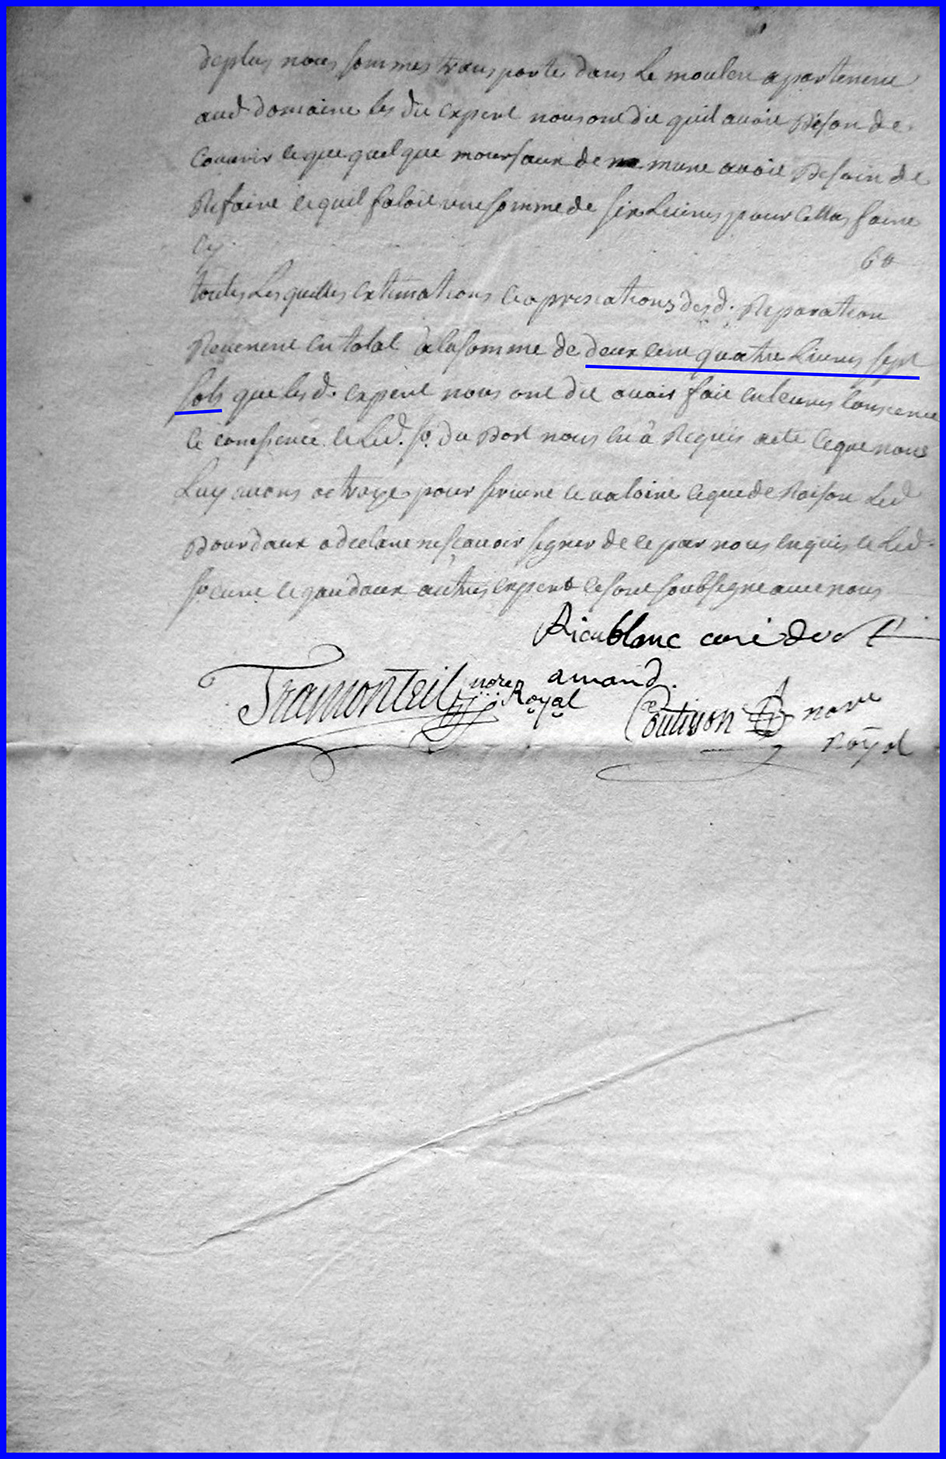 deplus nous sommes transportes dans le moulein apartenene
aud domaine les dit expert nous ont dit quil avoit Beson de
Couvrir et que quelque moursaux de mure avoit Besoin de
Refaire et quil faloit une somme de six Livres pour cella faire
Cy. 6tt
toutes Lesquelles estimations et apresiations desd. Reparation
Revenent en total a la somme de deux cent quatre Livres sept
sols que lesd. expert nous ont dit avoir fait en leures Consience
et consience, et Led. sr. Du Bost nous en a Requis acte et que nous
Luy avons octroye pour servire et valoire et que de Raison Led
Bourdaux a declare ne scavoir signer de ce par nous enquis et Led.
sr cure et qaudaux autres expert ce sont soubsigne avec nous
Rieublanc curé de st
amand.
Tramonteil nore Royal
Coutison nore
Royal